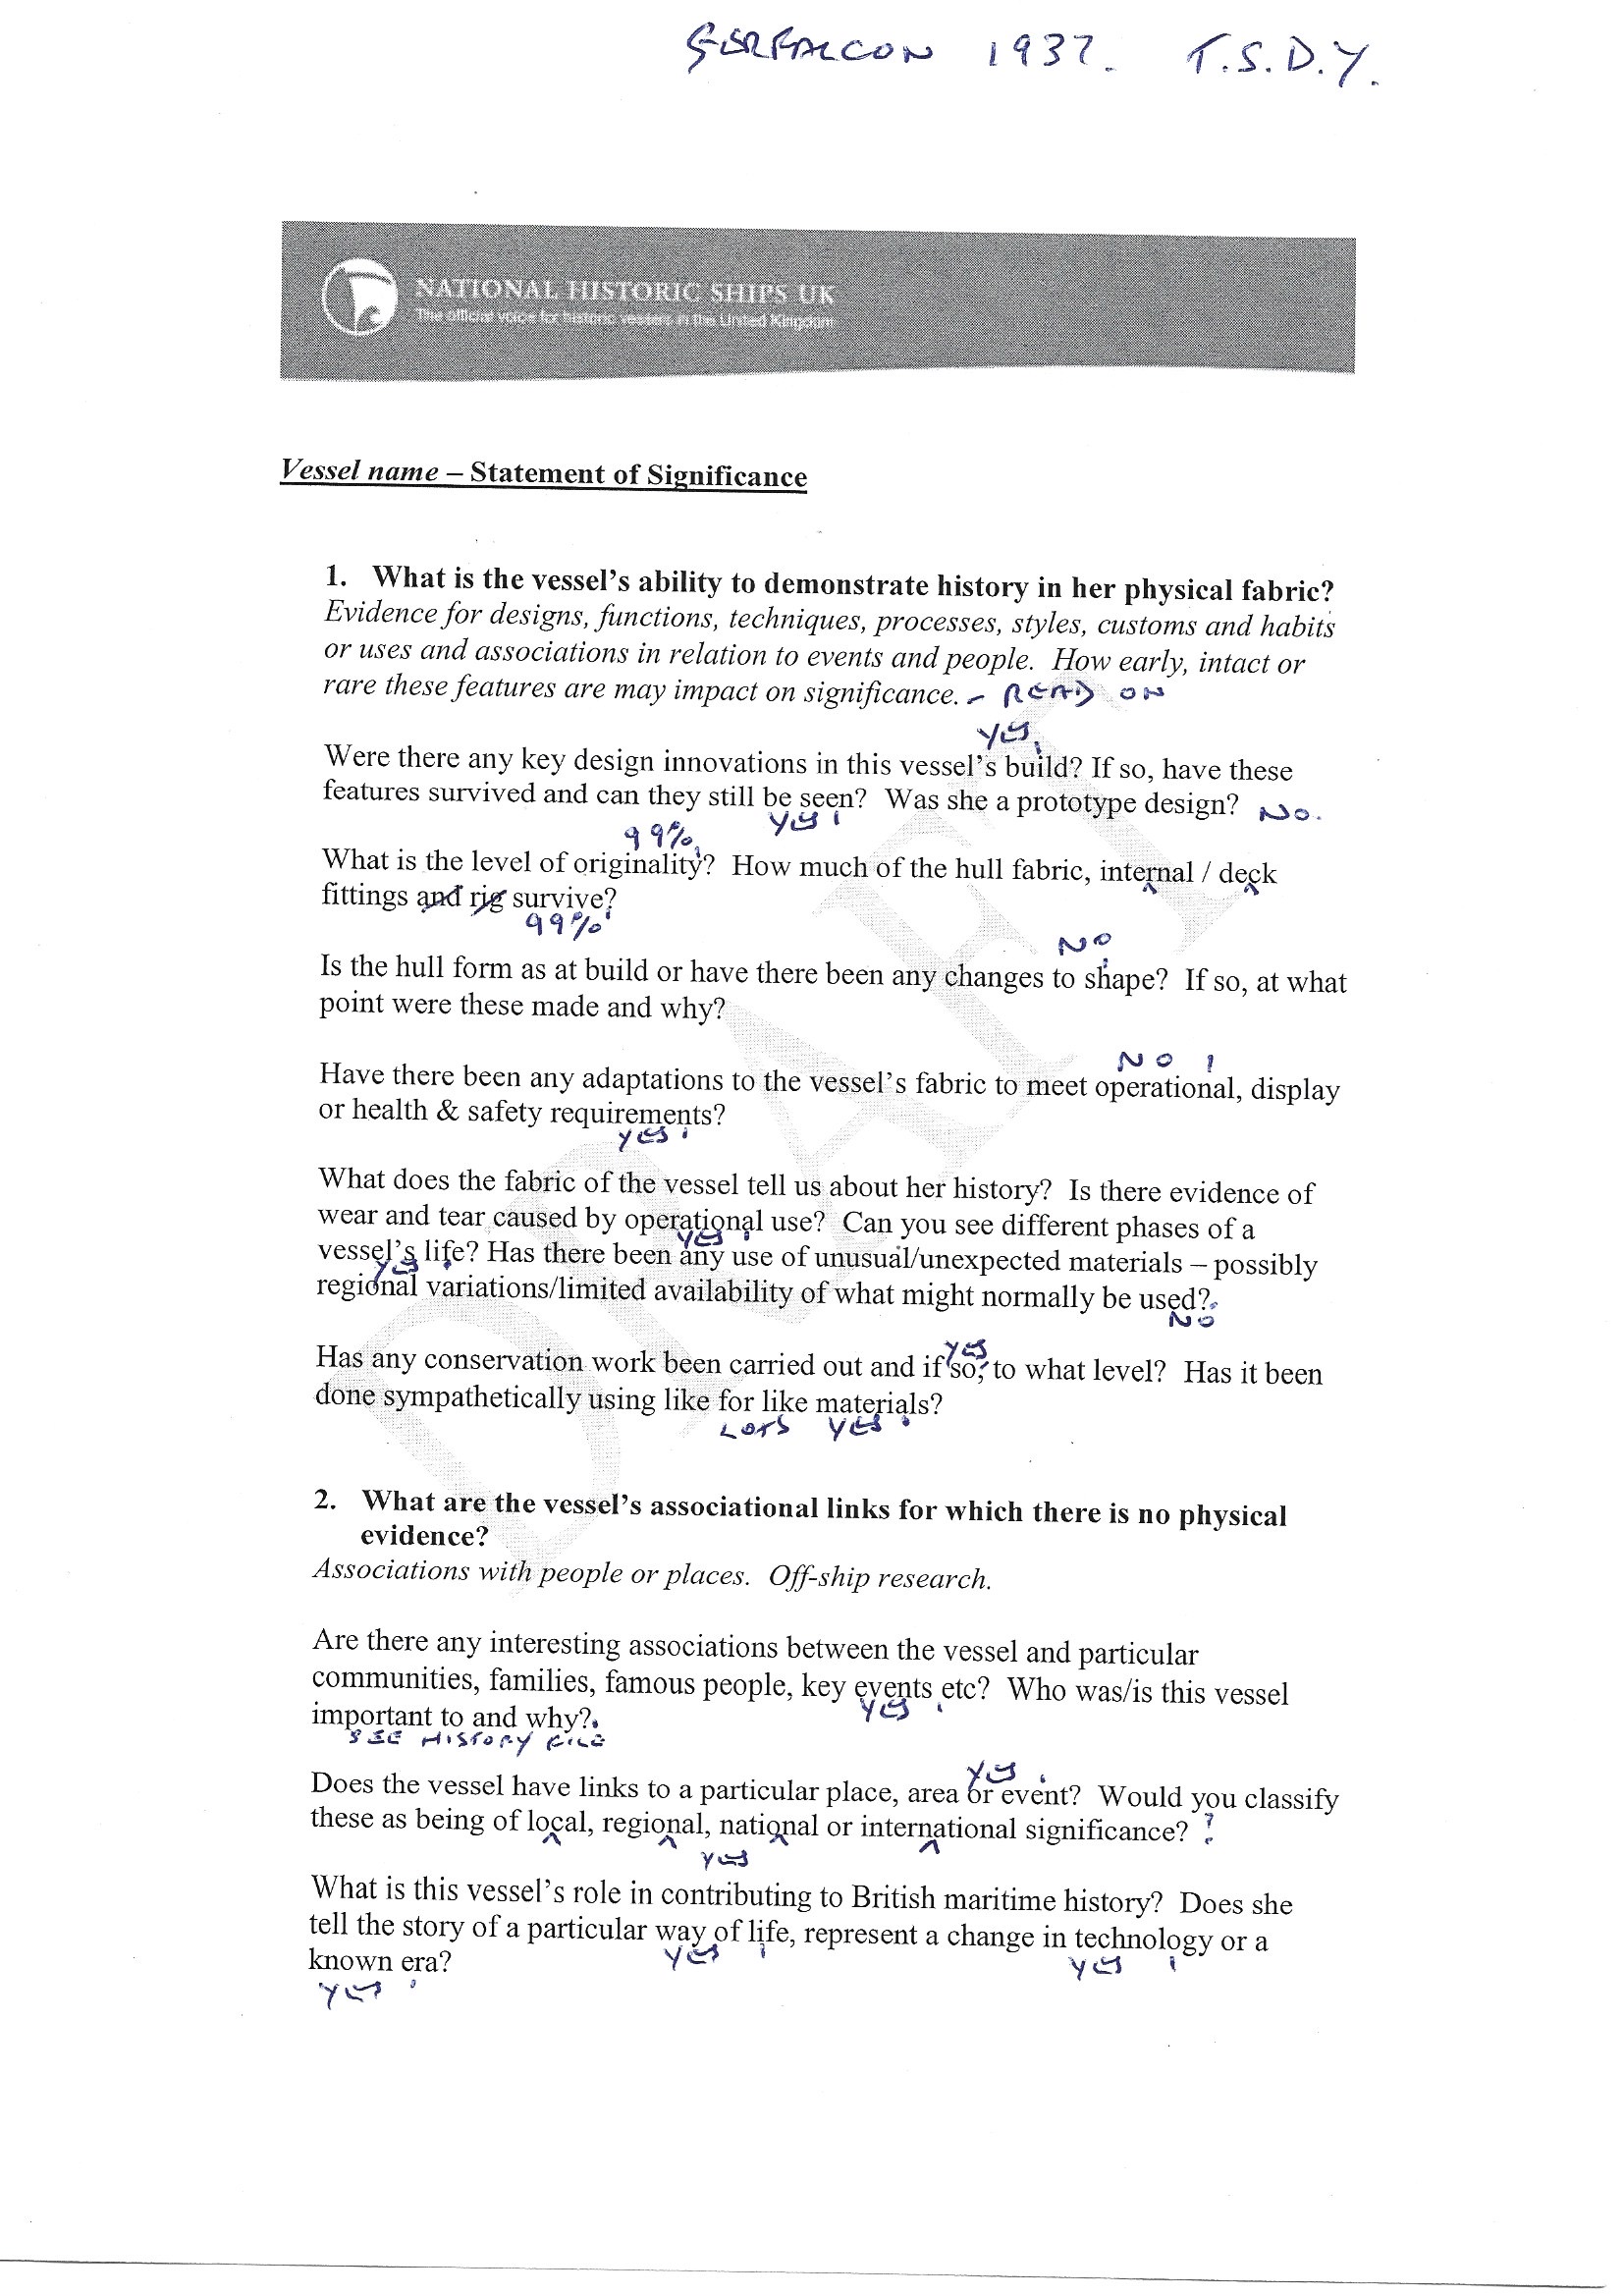 GERFALCON 1937. T.S.D.Y.
NATIONAL HISTORIC SHIPS UK
The official voice for historic vessels in the United Kingdom
Vessel name – Statement of Significance
1. What is the vessel's ability to demonstrate history in her physical fabric?
Evidence for designs, functions, techniques, processes, styles, customs and habits
or uses and associations in relation to events and people. How early, intact or
rare these features are may impact on significance. - READ ON
YES
Were there any key design innovations in this vessel's build? If so, have these
features survived and can they still be seen? Was she a prototype design? NO.
YES!
99%
What is the level of originality? How much of the hull fabric, internal / deck
fittings and rig survive?
99%
NO
Is the hull form as at build or have there been any changes to shape? If so, at what
point were these made and why?
NO !
Have there been any adaptations to the vessel's fabric to meet operational, display
or health & safety requirements?
YES!
What does the fabric of the vessel tell us about her history? Is there evidence of
wear and tear caused by operational use? Can you see different phases of a
YES
vessel's life? Has there been any use of unusual/unexpected materials – possibly
YES
regional variations/limited availability of what might normally be used?
NO
YES
Has any conservation work been carried out and if so, to what level? Has it been
done sympathetically using like for like materials?
LOTS YES
2. What are the vessel's associational links for which there is no physical
evidence?
Associations with people or places. Off-ship research.
Are there any interesting associations between the vessel and particular
communities, families, famous people, key events etc? Who was/is this vessel
YES
important to and why?
SEE HISTORY FILE
YES
Does the vessel have links to a particular place, area or event? Would you classify
these as being of local, regional, national or international significance? ?
YES
What is this vessel's role in contributing to British maritime history? Does she
tell the story of a particular way of life, represent a change in technology or a
YES YES
known era?
YES
DRAFT